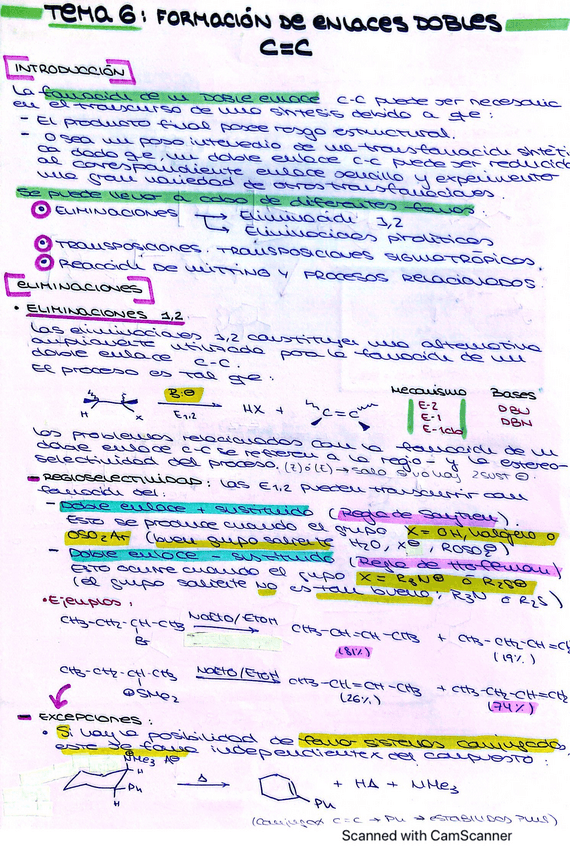 TEMA 6: FORMACIÓN DE ENLACES DOBLES
C=C
INTRODUCCIÓN
La formación de un DOBLE enlace C-C puede ser necesaria
en el transcurso de una síntesis debido a qe:
- El producto final posee rasgo estructural.
- O sea un paso intermedio de una transformación sintéti
ca dado qe, un doble enlace C-C puede ser reducido
al correspondiente enlace sencillo y experimentar
una gran variedad de otras transformaciones.
Se puede llevar a cabo de diferentes formas:
ELIMINACIONES → Eliminación 1,2
→ Eliminaciones pirolíticas
TRANSPOSICIONES. TRANSPOSICIONES SIGMATRÓPICAS.
REACCIÓN DE WITTING Y PROCESOS RELACIONADOS.
ELIMINACIONES
• ELIMINACIONES 1,2
Las eliminaciones 1,2 constituyen una alternativa
ampliamente utilizada para la formación de un
doble enlace C-C.
El proceso es tal qe:
Mecanismo Bases
H X B:⊖ E1,2 HX + C=C
E-2 DBU
E-1 DBN
E-1cb
Los problemas relacionados con la formación de un
doble enlace C-C se refieren a la regio- y la estereo-
selectividad del proceso. (Z) ó (E) → solo si
- REGIOSELECTIVIDAD: Las E1,2 pueden transcurrir con
formación del:
- Doble enlace + sustituido (Regla de Saytzev).
Esto se produce cuando el grupo X = OH, halógeno o
OSO2Ar (buen grupo saliente H2O, X⊖, ROSO⊖)
- Doble enlace - sustituido (Regla de Hoffman)
Esto ocurre cuando el grupo X = R3N⊕ ó R2S⊕
(el grupo saliente no es tan bueno; R3N ó R2S)
• Ejemplos:
CH3-CH2-CH-CH3 NaEtO/EtOH CH3-CH=CH-CH3 + CH3-CH2-CH=CH
Br (81%) (19%)
CH3-CH2-CH-CH3 NaEtO/EtOH CH3-CH=CH-CH3 + CH3-CH2-CH=CH2
⊕SMe2 (26%) (74%)
- EXCEPCIONES:
• Si hay la posibilidad de formar sistemas conjugados,
este se forma independientex del compuesto:
NMe3 A⊖
H
Ph
H
Δ
Ph
+ HA + NMe3
(conjugax C=C → Ph → ESTABILIDAD PLUS)
Scanned with CamScanner